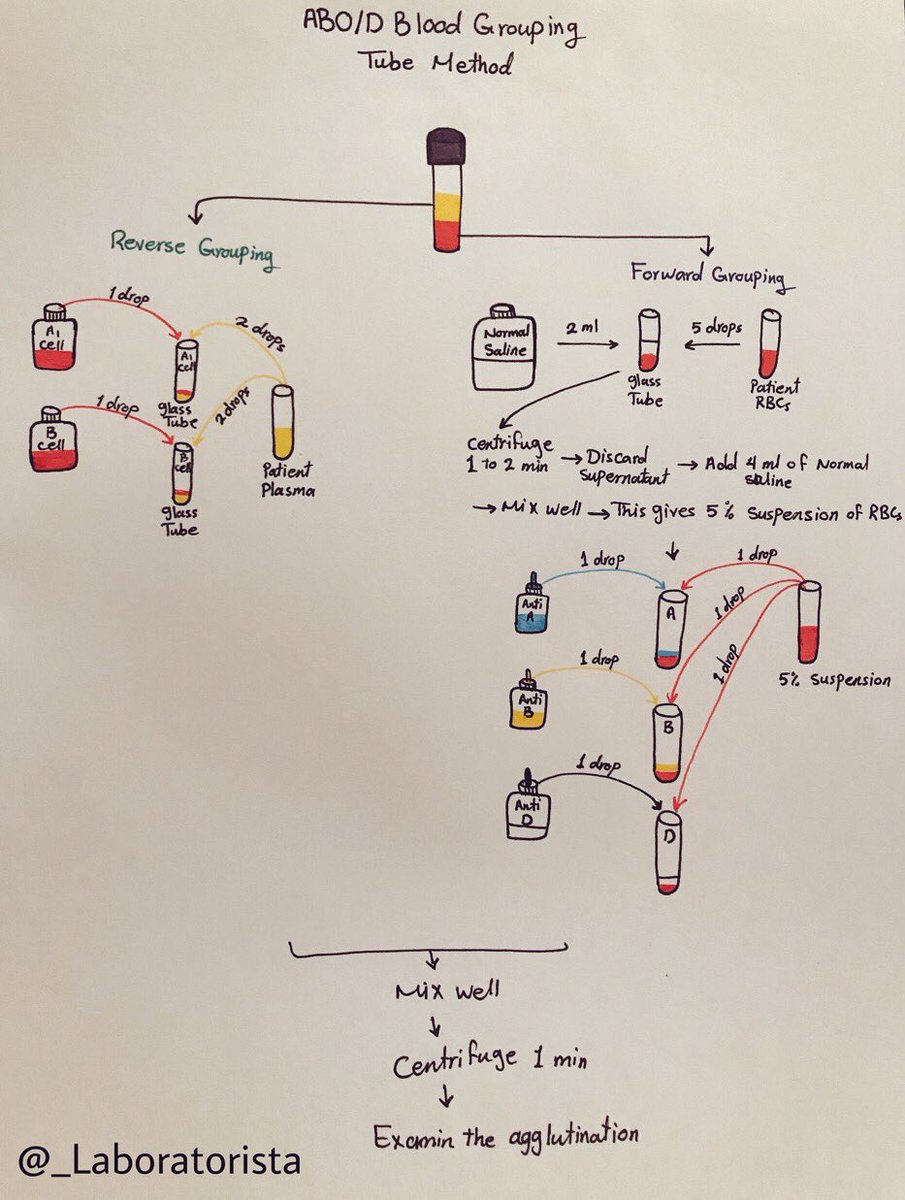 ABO/D Blood Grouping
Tube Method
Reverse Grouping
1 drop
A1
cell
2 drops
A1
cell
glass
Tube
1 drop
B
cell
2 drops
B
cell
glass
Tube
Patient
Plasma
Forward Grouping
Normal
Saline
2 ml
glass
Tube
5 drops
Patient
RBCs
Centrifuge
1 to 2 min
→ Discard
Supernatant
→ Add 4 ml of Normal
saline
→ Mix well → This gives 5% suspension of RBCs
1 drop
1 drop
Anti
A
A
1 drop
1 drop
5% suspension
1 drop
Anti
B
B
1 drop
Anti
D
D
Mix well
Centrifuge 1 min
Examin the agglutination
@_Laboratorista